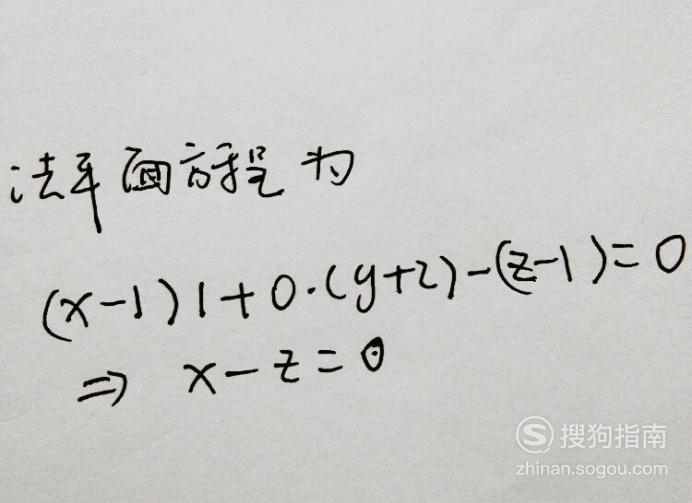 法平面方程为
(x-1)1+0·(y+2)-(z-1)=0
⇒ x-z=0
搜狗指南
zhinan.sogou.com